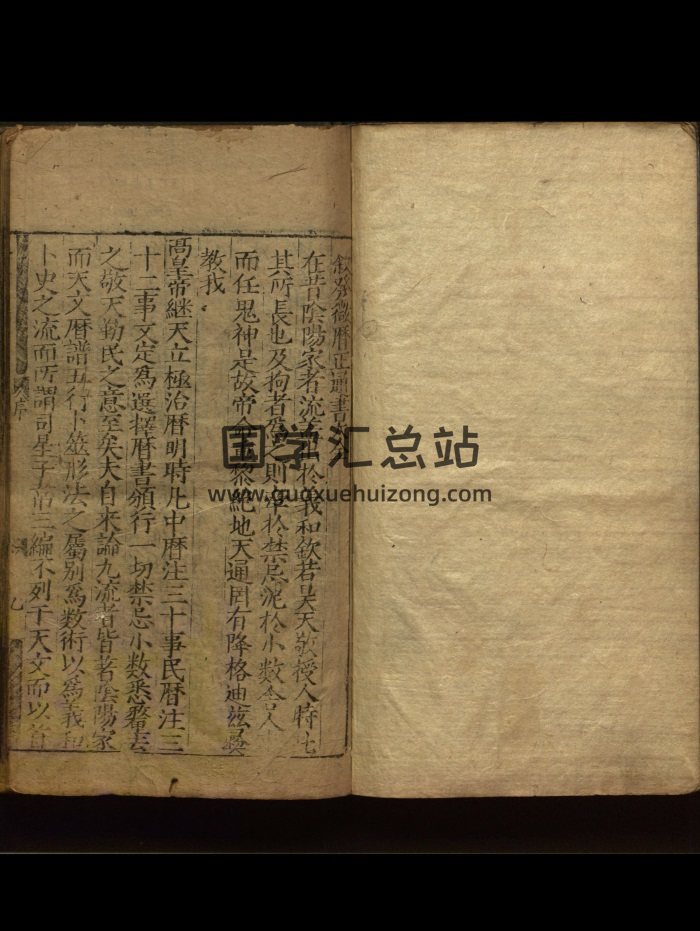 敘發微曆正通書大全
在昔陰陽家者流盖出於羲和欽若昊天敬授人時七
其所長也及拘者爲之則牽於禁忌泥於小數舍人
而任鬼神是故帝命重黎絶地天通罔有降格迪玆彛
教我
高皇帝継天立極治暦明時凡中暦注三十事民暦注三
十二事文定爲選擇暦書頒行一切禁忌小數悉釐去
之敬天勤民之意至矣夫自来論九流者皆著陰陽家
而天文暦譜五行卜筮形法之屬别爲数術以爲羲和
卜史之流而所謂司星子韋三編不列于天文而以首
序
乙
国学汇总站
www.guoxuehuizong.com